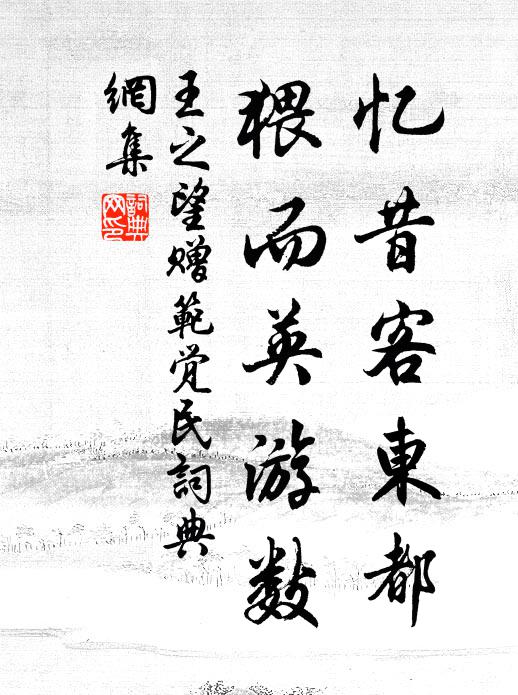 忆昔客東都
猥而英游数
王之望赠範觉民詞典
網集
詞典
网印